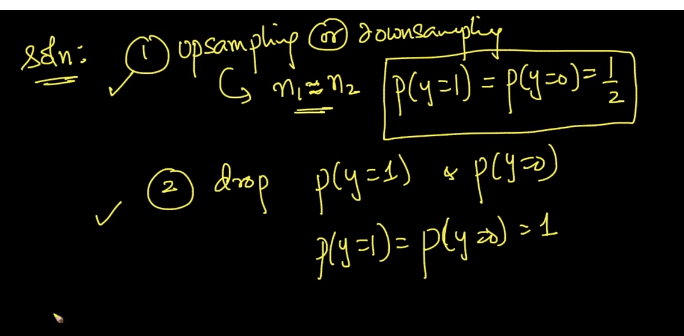 soln: ① upsampling or downsampling
↳ n₁ ≈ n₂ p(y=1) = p(y=0) = 1/2
② drop p(y=1) & p(y=0)
p(y=1) = p(y=0) = 1